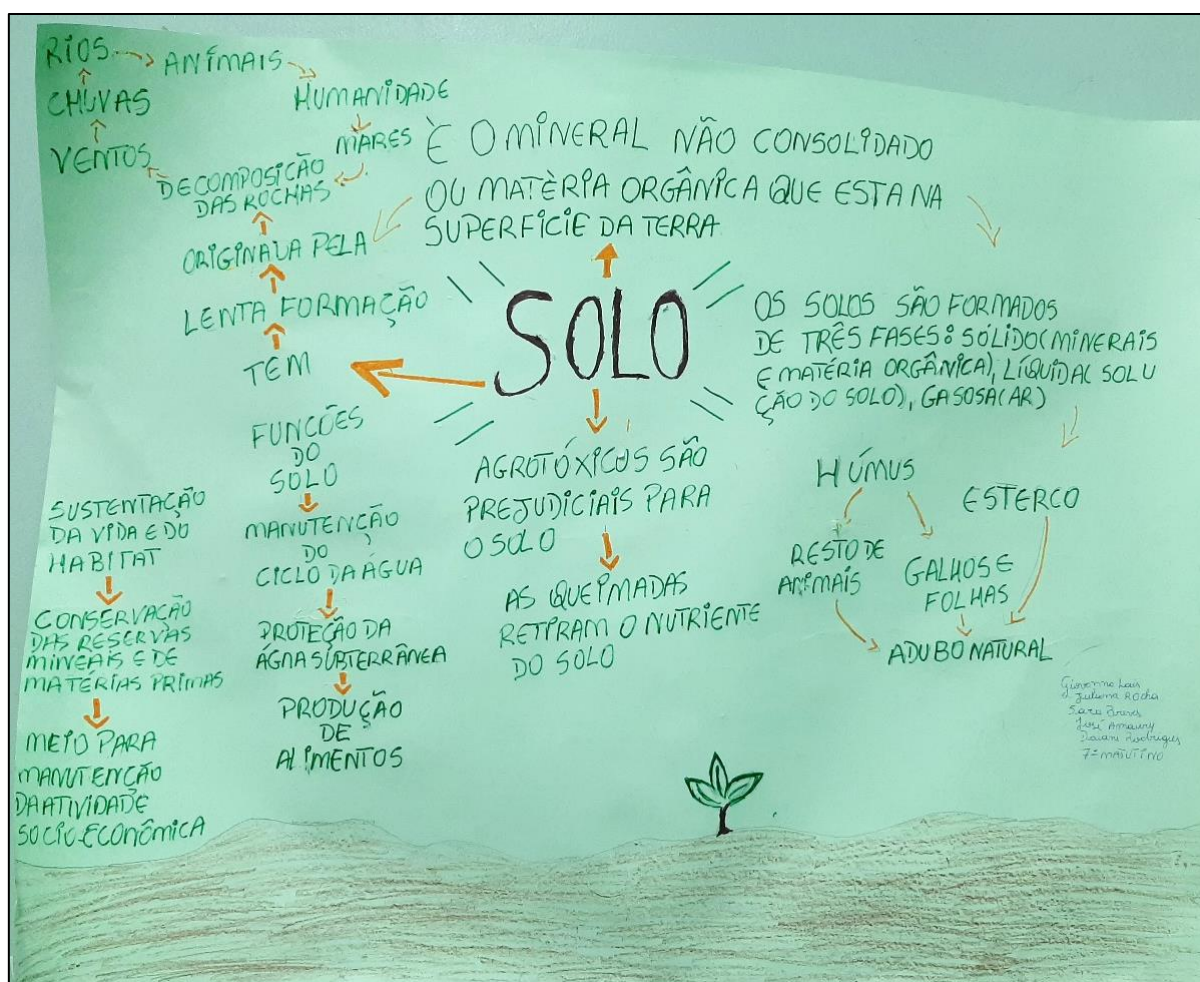 RIOS
ANIMAIS
CHUVAS
HUMANIDADE
VENTOS
MARES
DECOMPOSIÇÃO
DAS ROCHAS
È O MINERAL NÃO CONSOLIDADO
OU MATÈRIA ORGÂNICA QUE ESTA NA
SUPERFICIE DA TERRA
PELA
LENTA FORMAÇÃO
TEM
SOLO
OS SOLOS SÃO FORMADOS
DE TRÊS FASES: SÓLIDO(MINERAIS
E MATÉRIA ORGÂNICA), LÍQUIDA( SOLU
ÇÃO DO SOLO), GASOSA(AR)
FUNCÕES
DO
SOLO
MANUTENÇÃO
DO
CICLO DA ÁGUA
PROTEÇÃO DA
SUBTERRÂNEA
PRODUÇÃO
DE
ALIMENTOS
SUSTENTAÇÃO
DA VIDA E DO
HABITAT
CONSERVAÇÃO
DAS RESERVAS
MINEAIS E DE
MATÉRIAS PRIMAS
MEIO PARA
MANUTENÇÃO
DA ATIVIDADE
SOCIO-ECONÔMICA
AGROTÓXICOS SÃO
PREJUDICIAIS PARA
O SOLO
AS QUEIMADAS
RETIRAM O NUTRIENTE
DO SOLO
HÚMUS
ESTERCO
RESTO DE
ANIMAIS
GALHOS E
FOLHAS
ADUBO NATURAL
Juliana Rocha
José Amaury
Rodrigues
7º MATUTINO